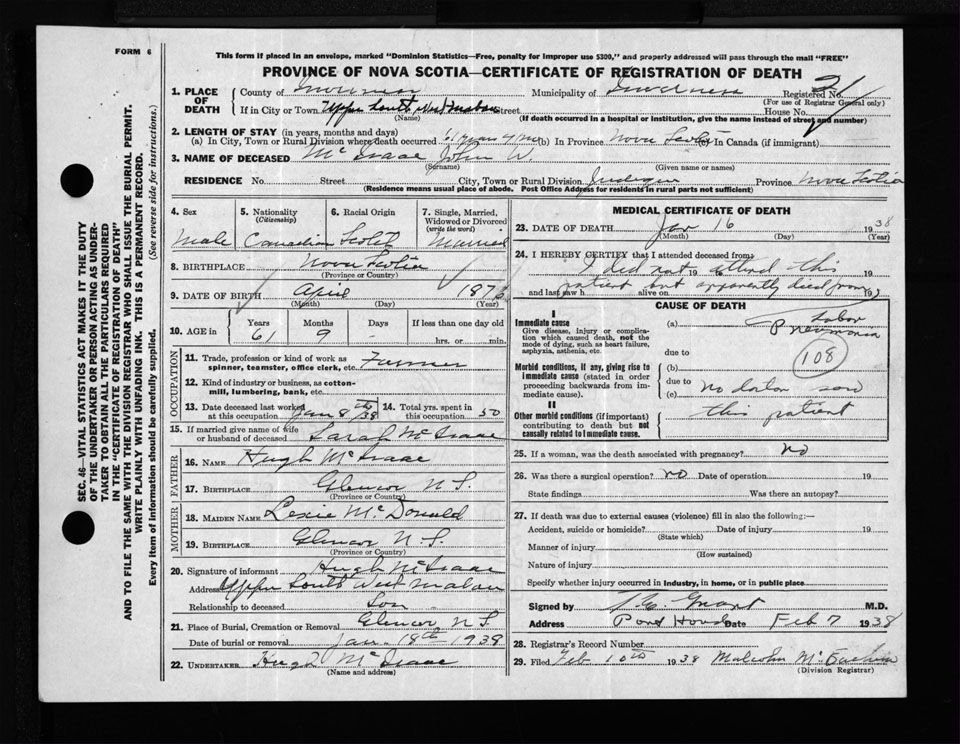 FORM 6
This form if placed in an envelope, marked "Dominion Statistics—Free, penalty for improper use $300," and properly addressed will pass through the mail "FREE"
PROVINCE OF NOVA SCOTIA—CERTIFICATE OF REGISTRATION OF DEATH
1. PLACE OF DEATH County of Inverness Municipality of Inverness Registered No. 21
(For use of Registrar General only)
If in City or Town Upper South West Mabou Street House No.
(Name) (If death occurred in a hospital or institution, give the name instead of street and number)
2. LENGTH OF STAY (in years, months and days)
(a) In City, Town or Rural Division where death occurred 61 years 9 mo (b) In Province Nova Scotia (c) In Canada (if immigrant)
3. NAME OF DECEASED McIsaac John W.
(Surname) (Given name or names)
RESIDENCE No. Street City, Town or Rural Division Province Nova Scotia
(Residence means usual place of abode. Post Office Address for residents in rural parts not sufficient)
4. Sex 5. Nationality (Citizenship) 6. Racial Origin 7. Single, Married, Widowed or Divorced (write the word)
Male Canadian Scotch Married
8. BIRTHPLACE Nova Scotia
(Province or Country)
9. DATE OF BIRTH April 1876
(Month) (Day) (Year)
10. AGE in Years Months Days If less than one day old
61 9 - hrs. or min.
OCCUPATION
11. Trade, profession or kind of work as spinner, teamster, office clerk, etc. Farmer
12. Kind of industry or business, as cotton-mill, lumbering, bank, etc.
13. Date deceased last worked at this occupation Jan 8th 38 14. Total yrs. spent in this occupation 50
15. If married give name of wife or husband of deceased Sarah McIsaac
FATHER
16. NAME Hugh McIsaac
17. BIRTHPLACE Glencoe N.S.
(Province or Country)
MOTHER
18. MAIDEN NAME Lexie McDonald
19. BIRTHPLACE Glencoe N.S.
(Province or Country)
20. Signature of informant Hugh McIsaac
Address Upper South West Mabou
Relationship to deceased Son
21. Place of Burial, Cremation or Removal Glencoe N S
Date of burial or removal Jan. 18th 1938
22. UNDERTAKER Hugh McIsaac
(Name and address)
MEDICAL CERTIFICATE OF DEATH
23. DATE OF DEATH Jan 16 1938
(Month) (Day) (Year)
24. I HEREBY CERTIFY that I attended deceased from
I did not 19 attend this 19
patient but apparently died from
and last saw h alive on 19
CAUSE OF DEATH
I
Immediate cause (a) Lobar Pneumonia
Give disease, injury or complication which caused death, not the mode of dying, such as heart failure, asphyxia, asthenia, etc.
due to
(b) 108
Morbid conditions, if any, giving rise to immediate cause (stated in order proceeding backwards from immediate).
due to
(c) no
this patient
II
Other morbid conditions (if important) contributing to death but not causally related to immediate cause.
25. If a woman, was the death associated with pregnancy? no
26. Was there a surgical operation? no Date of operation 19
State findings Was there an autopsy?
27. If death was due to external causes (violence) fill in also the following:—
Accident, suicide or homicide? Date of injury 19
(State which)
Manner of injury
(How sustained)
Nature of injury
Specify whether injury occurred in industry, in home, or in public place
Signed by Grant M.D.
Address Port Hood Date Feb 7 1938
28. Registrar's Record Number
29. Filed Feb 10th 1938 Malcolm McEachern
(Division Registrar)
SEC. 46—VITAL STATISTICS ACT MAKES IT THE DUTY
OF THE UNDERTAKER OR PERSON ACTING AS UNDER-
TAKER TO OBTAIN ALL THE PARTICULARS REQUIRED
IN THE "CERTIFICATE OF REGISTRATION OF DEATH"
AND TO FILE THE SAME WITH THE DIVISION REGISTRAR WHO SHALL ISSUE THE BURIAL PERMIT.
WRITE PLAINLY WITH UNFADING INK. THIS IS A PERMANENT RECORD.
Every item of information should be carefully supplied. (See reverse side for instructions.)